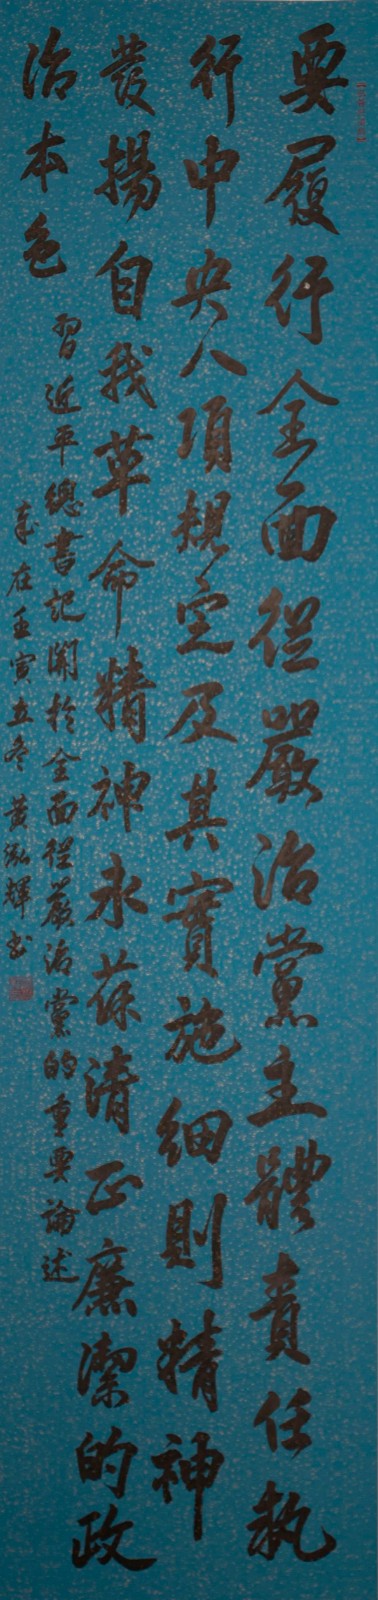 要履行全面從嚴治黨主體責任執
行中央八項規定及其實施細則精神
發揚自我革命精神永葆清正廉潔的政
治本色
習近平總書記關於全面從嚴治黨的重要論述
歲在壬寅立冬黃泓輝書